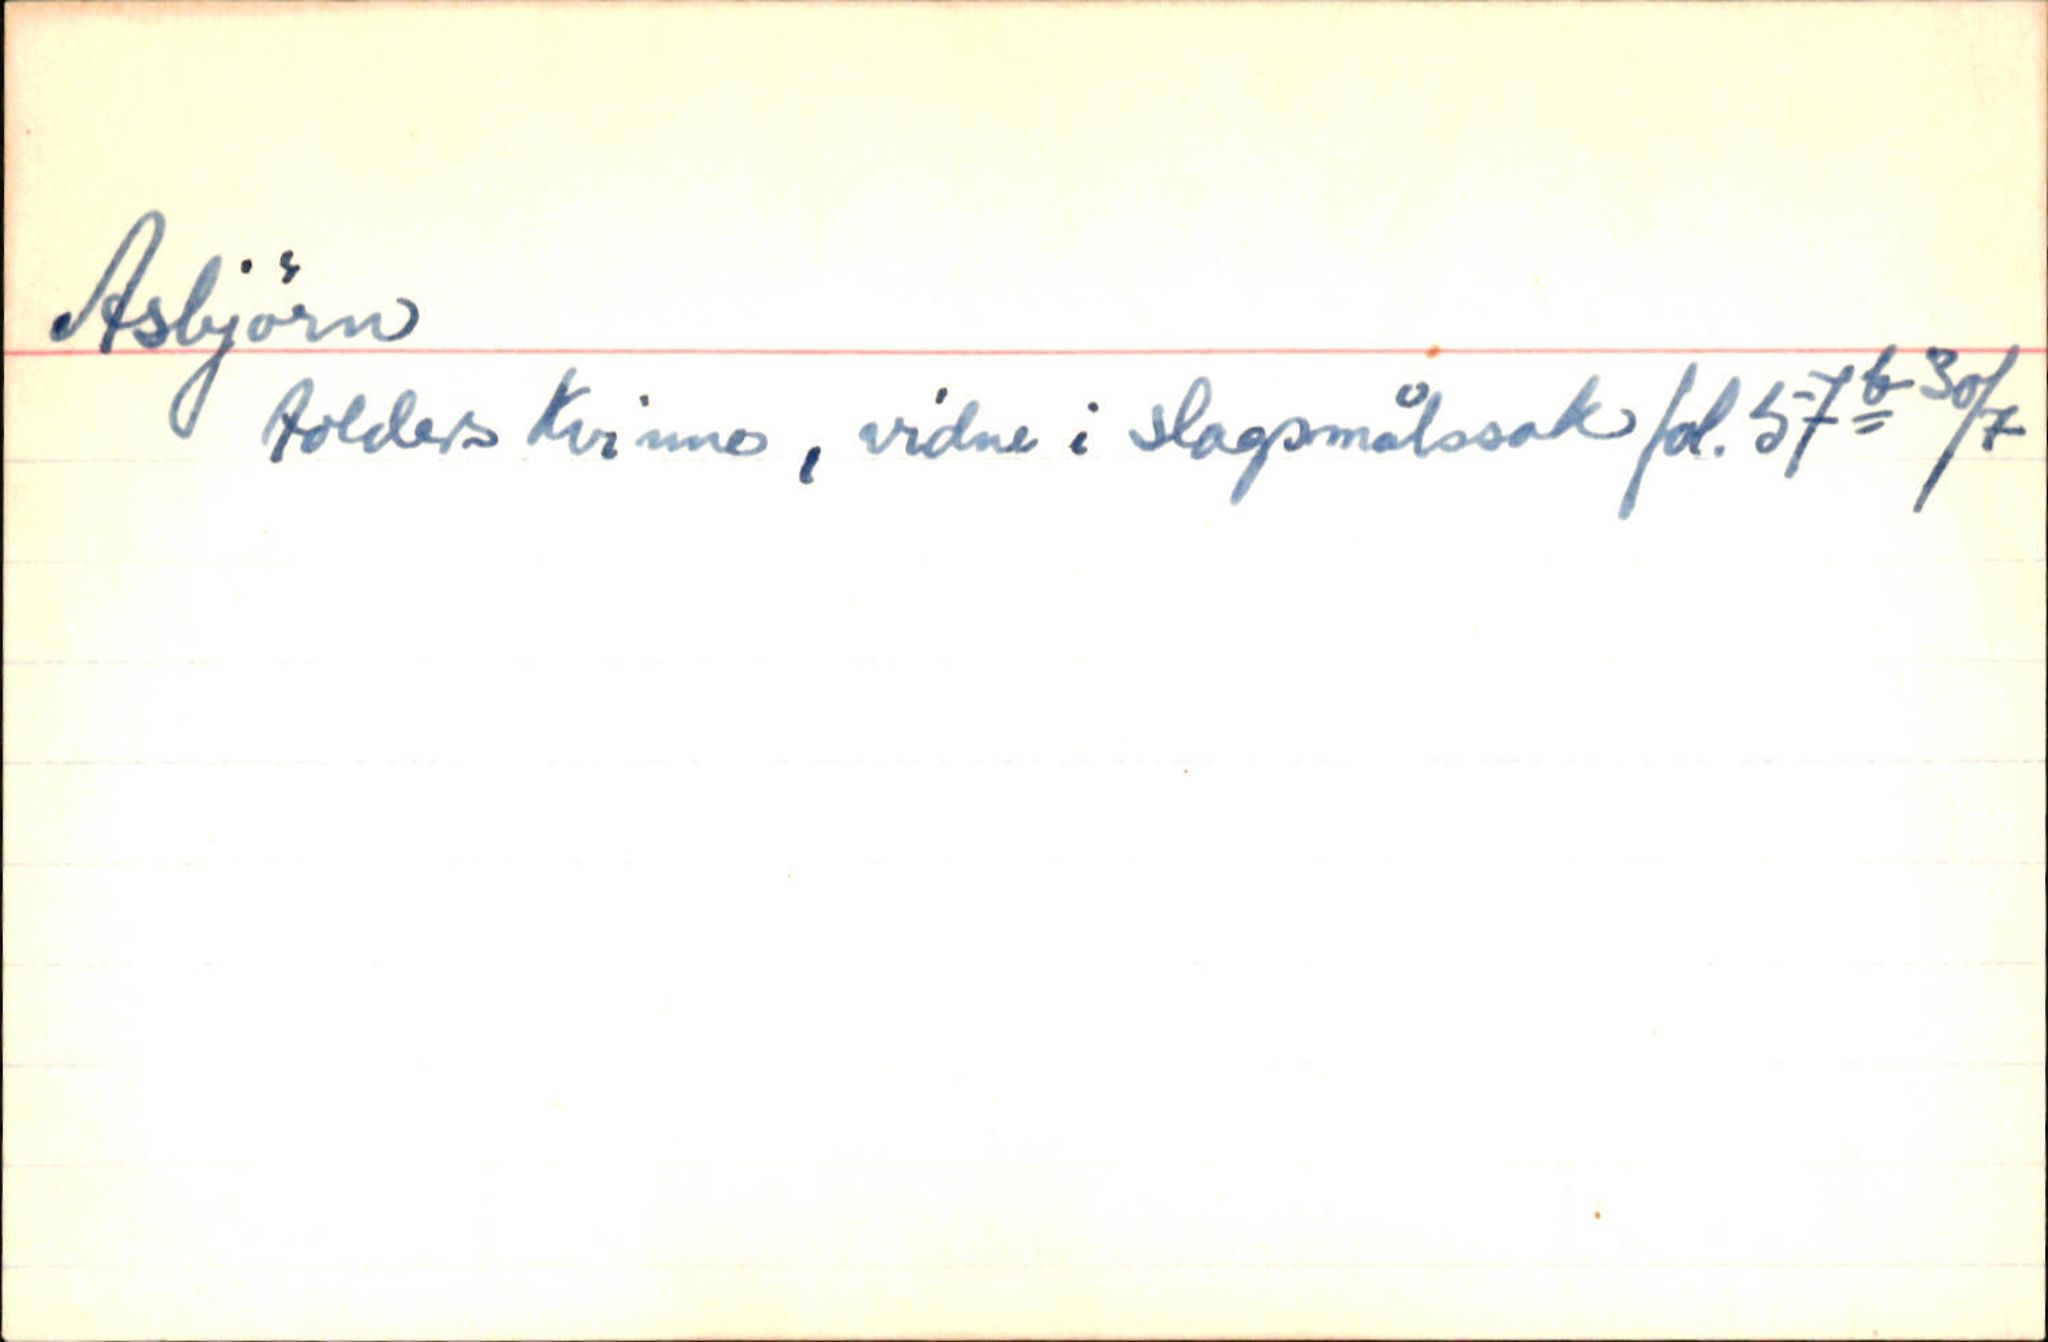 Asbjörn
tolders Kvinne, vidne i slagsmålssak fol. 57b 30/7